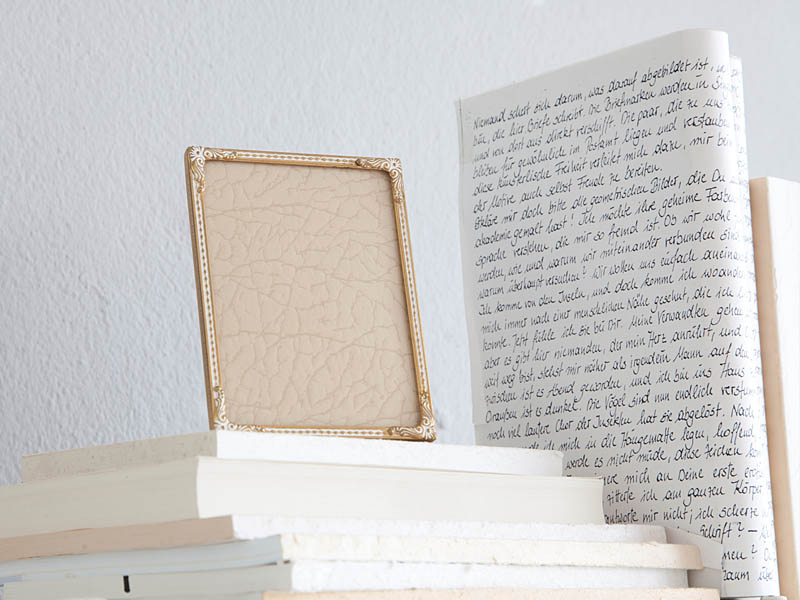 Niemand schert sich darum, was darauf abgebildet ist,
bün, die hier Briefe schreibt. Die Briefmarken werden in
und von dort aus direkt verschifft. Die paar, die zu uns
bleiben für gewöhnlich im Postamt liegen und verstauben
diese künstlerliche Freiheit verleitet mich dazu, mir bei
der Motive auch selbst Freude zu bereiten.
Erkläre mir doch bitte die geometrischen Bilder, die Du
akademie gemalt hast! Ich möchte ihre geheime Farben
sprache verstehen, die mir so fremd ist. Ob wir wohl
werden, wie und warum wir miteinander verbunden sind
warum überhaupt versuchen? Wir wollen uns einfach aneinan
Ich komme von den Inseln, und doch komme ich woander
mich immer nach einer menschlichen Nähe gesehnt, die ich
konnte. Jetzt fühle ich sie bei Dir. Meine Verwandten gehen
aber es gibt hier niemanden, der mein Herz anrührt, und
weit weg bist, stehst mir näher als irgendein Mann auf den
zwischen ist es Abend geworden, und ich bin ins Haus
Draußen ist es dunkel. Die Vögel sind nun endlich verstum
noch viel lautere Chor der Insekten hat sie abgelöst. Nach
ich mich in die Hängematte legen, hoffend
werde es nicht müde, diese Zeichen
mich an Deine erste
zitterte ich am ganzen Körper
antworte mir nicht; ich scherze
Schrift? –
men? D
raum